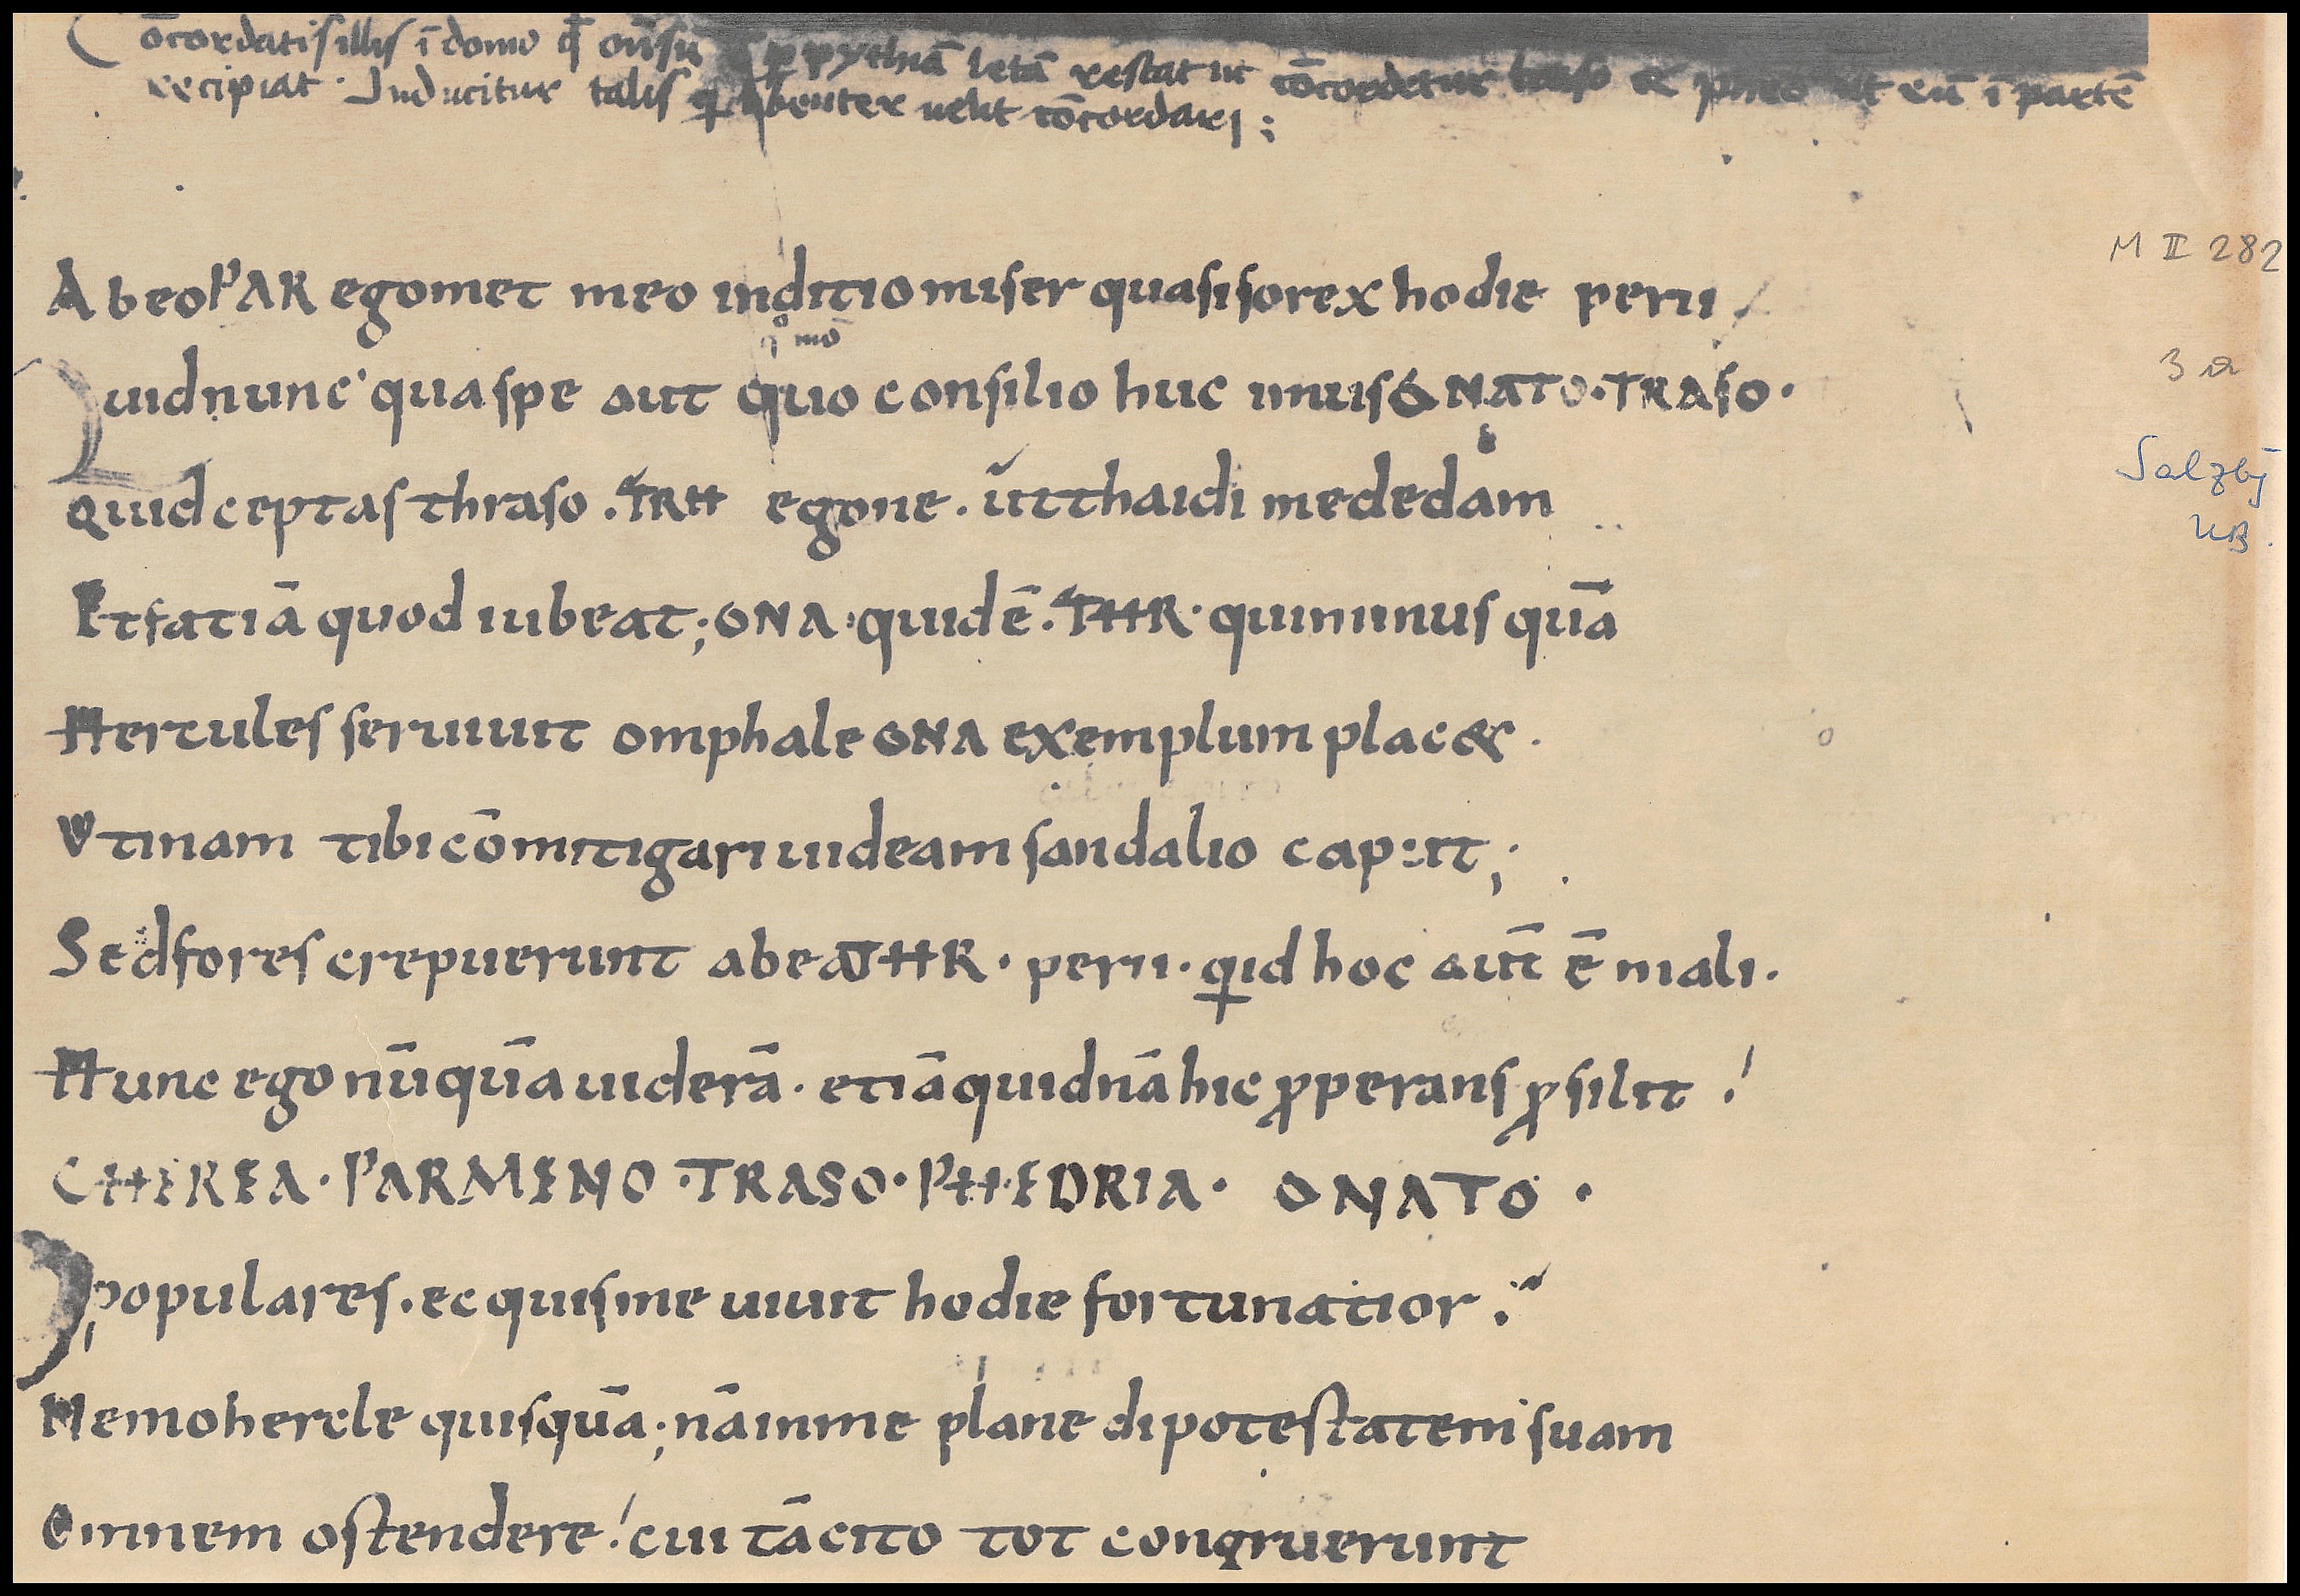 Cōcordatis illis ī domo q̄ om̄s ū p pythiā letā restat ut cōcordetur traso & eū ī partē
recipiat · Inducitur talis q libenter uelit cōcordari ;
M II 282
AbeoPAR egomet meo inditio miser quasi sorex hodie perii
qͦ mō
Quid nunc qua spe aut quo consilio huc imus GNATO · TRASO ·
3 a
Salzbg
UB.
Quid ceptas thraso . TRH egone . ut thaidi me dedam
Et fatiā quod iubeat ; GNA · quid ē . THR · qui minus quā
Hercules seruiuit omphale GNA exemplum plac& .
Utinam tibi cōmitigari uideam sandalio caput ;
Sed fores crepuerunt abea THR · perii · qid hoc aut̄ ē mali ·
Hunc ego nū quā uiderā · etiā quid nā hic ꝓperans ꝓsilit !
CHEREA · PARMENO · TRASO · PHEDRIA · GNATO ·
O populares . ecquis me uiuit hodie fortunatior .~
Nemo hercle quisquā ; nā in me plane di potestatem suam
Omnem ostendere ! cui tā cito tot congruerunt